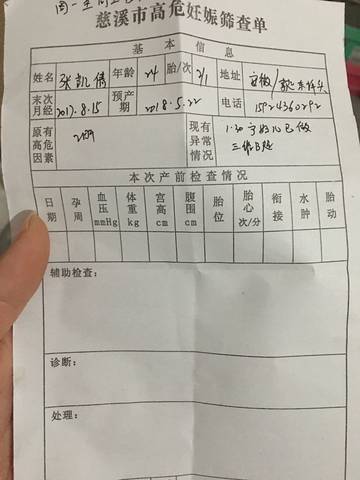 慈溪市高危妊娠筛查单
基 本 信 息
姓名 张凯倩 年龄 24 胎/次 2/1 地址 安徽/
末次月经 2017.8.15 预产期 2018.5.22 电话 15924360292
原有高危因素 现有异常情况 1.30
本次产前检查情况
日期 孕周 血压mmHg 体重kg 宫高cm 腹围cm 胎位 胎心次/分 衔接 水肿 胎动
辅助检查：
诊断：
处理：